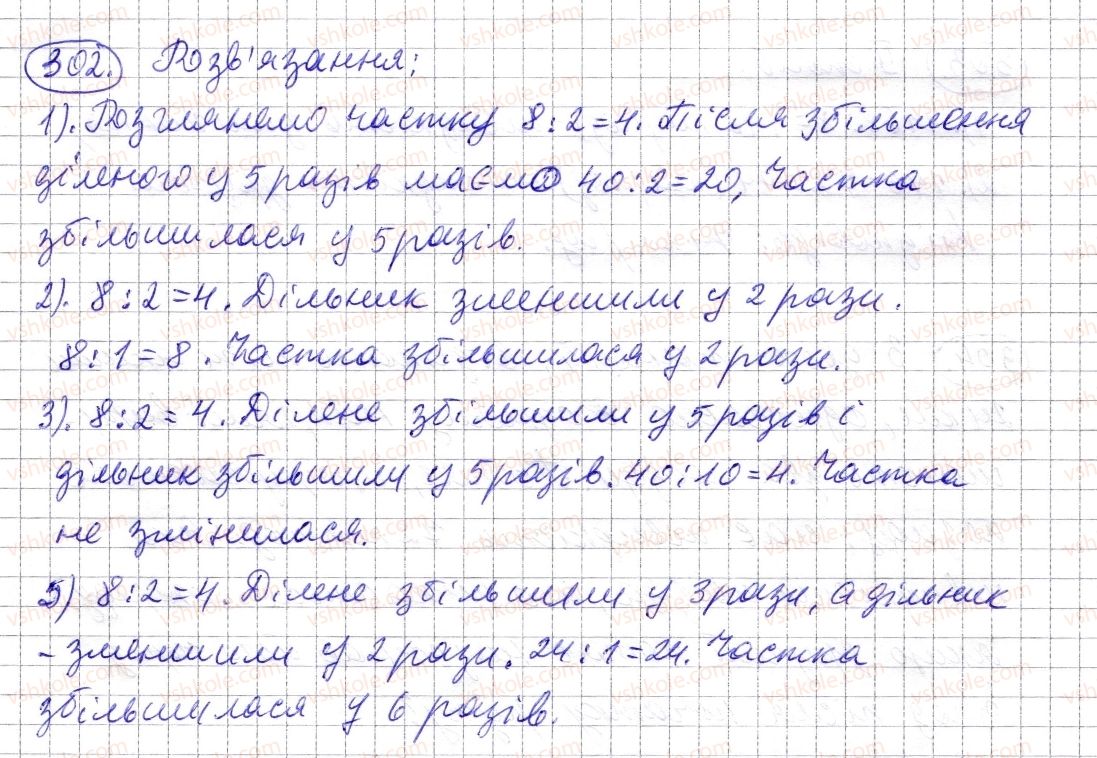 302. Розв'язання:
1). Розглянемо частку 8:2=4. Після збільшення
діленого у 5 разів маємо 40:2=20, Частка
збільшилася у 5 разів.
2). 8:2=4. Дільник зменшили у 2 рази.
8:1=8. Частка збільшилася у 2 рази.
3). 8:2=4. Ділене збільшили у 5 разів і
дільник збільшили у 5 разів. 40:10=4. Частка
не змінилася.
5) 8:2=4. Ділене збільшили у 3 рази, а дільник
- зменшили у 2 рази. 24:1=24. Частка
збільшилася у 6 разів.